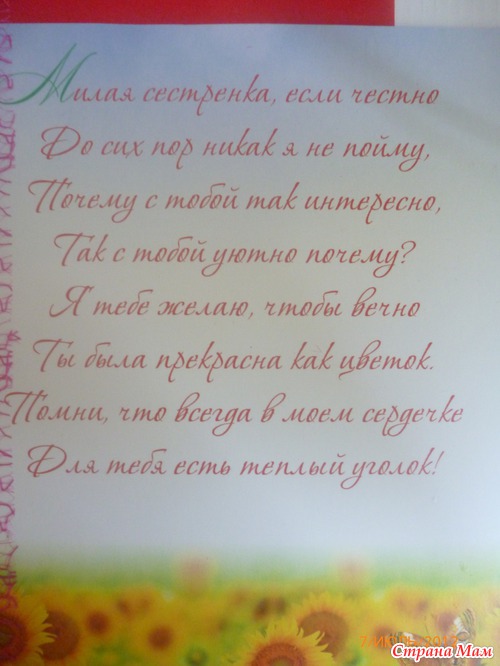 Милая сестренка, если честно
До сих пор никак я не пойму,
Почему с тобой так интересно,
Так с тобой уютно почему?
Я тебе желаю, чтобы вечно
Ты была прекрасна как цветок.
Помни, что всегда в моем сердечке
Для тебя есть теплый уголок!
Страна Мам